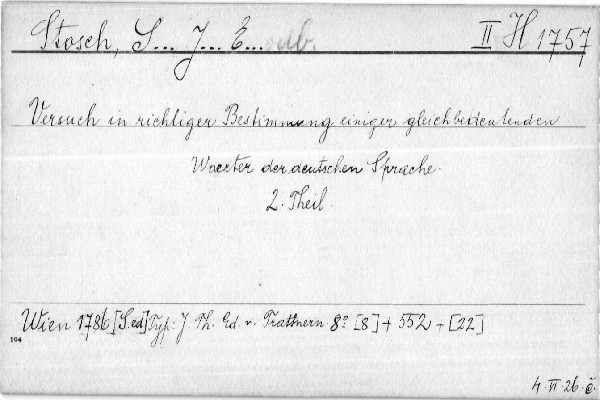 Stosch, S... J... E... odb.
II H 1757
Versuch in richtiger Bestimmung einiger gleichbedeutenden
Woerter der deutschen Sprache.
2. Theil.
Wien 1786 [S.ed] Typ: J Th. Ed. v. Trattnern 8º [8] + 552 + [22]
104
4. VI. 26. č.